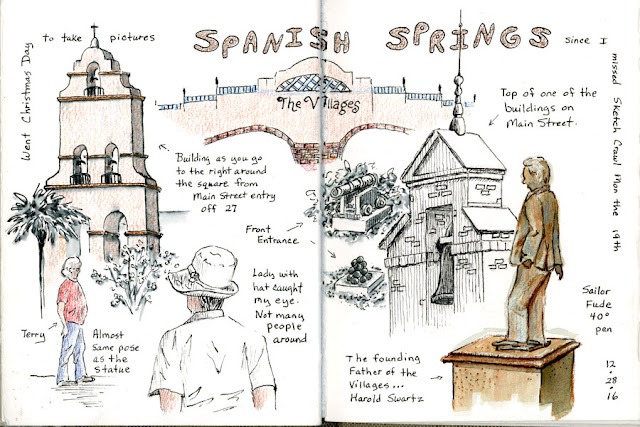 Went Christmas Day
to take pictures
SPANISH SPRINGS
since I
missed Sketch Crawl Mon the 19th
The Villages
Top of one of the
buildings on
Main Street.
Building as you go
to the right around
the square from
Main Street entry
off 27
Front
Entrance
Lady with
hat caught
my eye.
Not many
people
around
Terry
Almost
same pose
as the
statue
The founding
Father of the
Villages...
Harold Swartz
Sailor
Fude
40°
pen
12
28
16